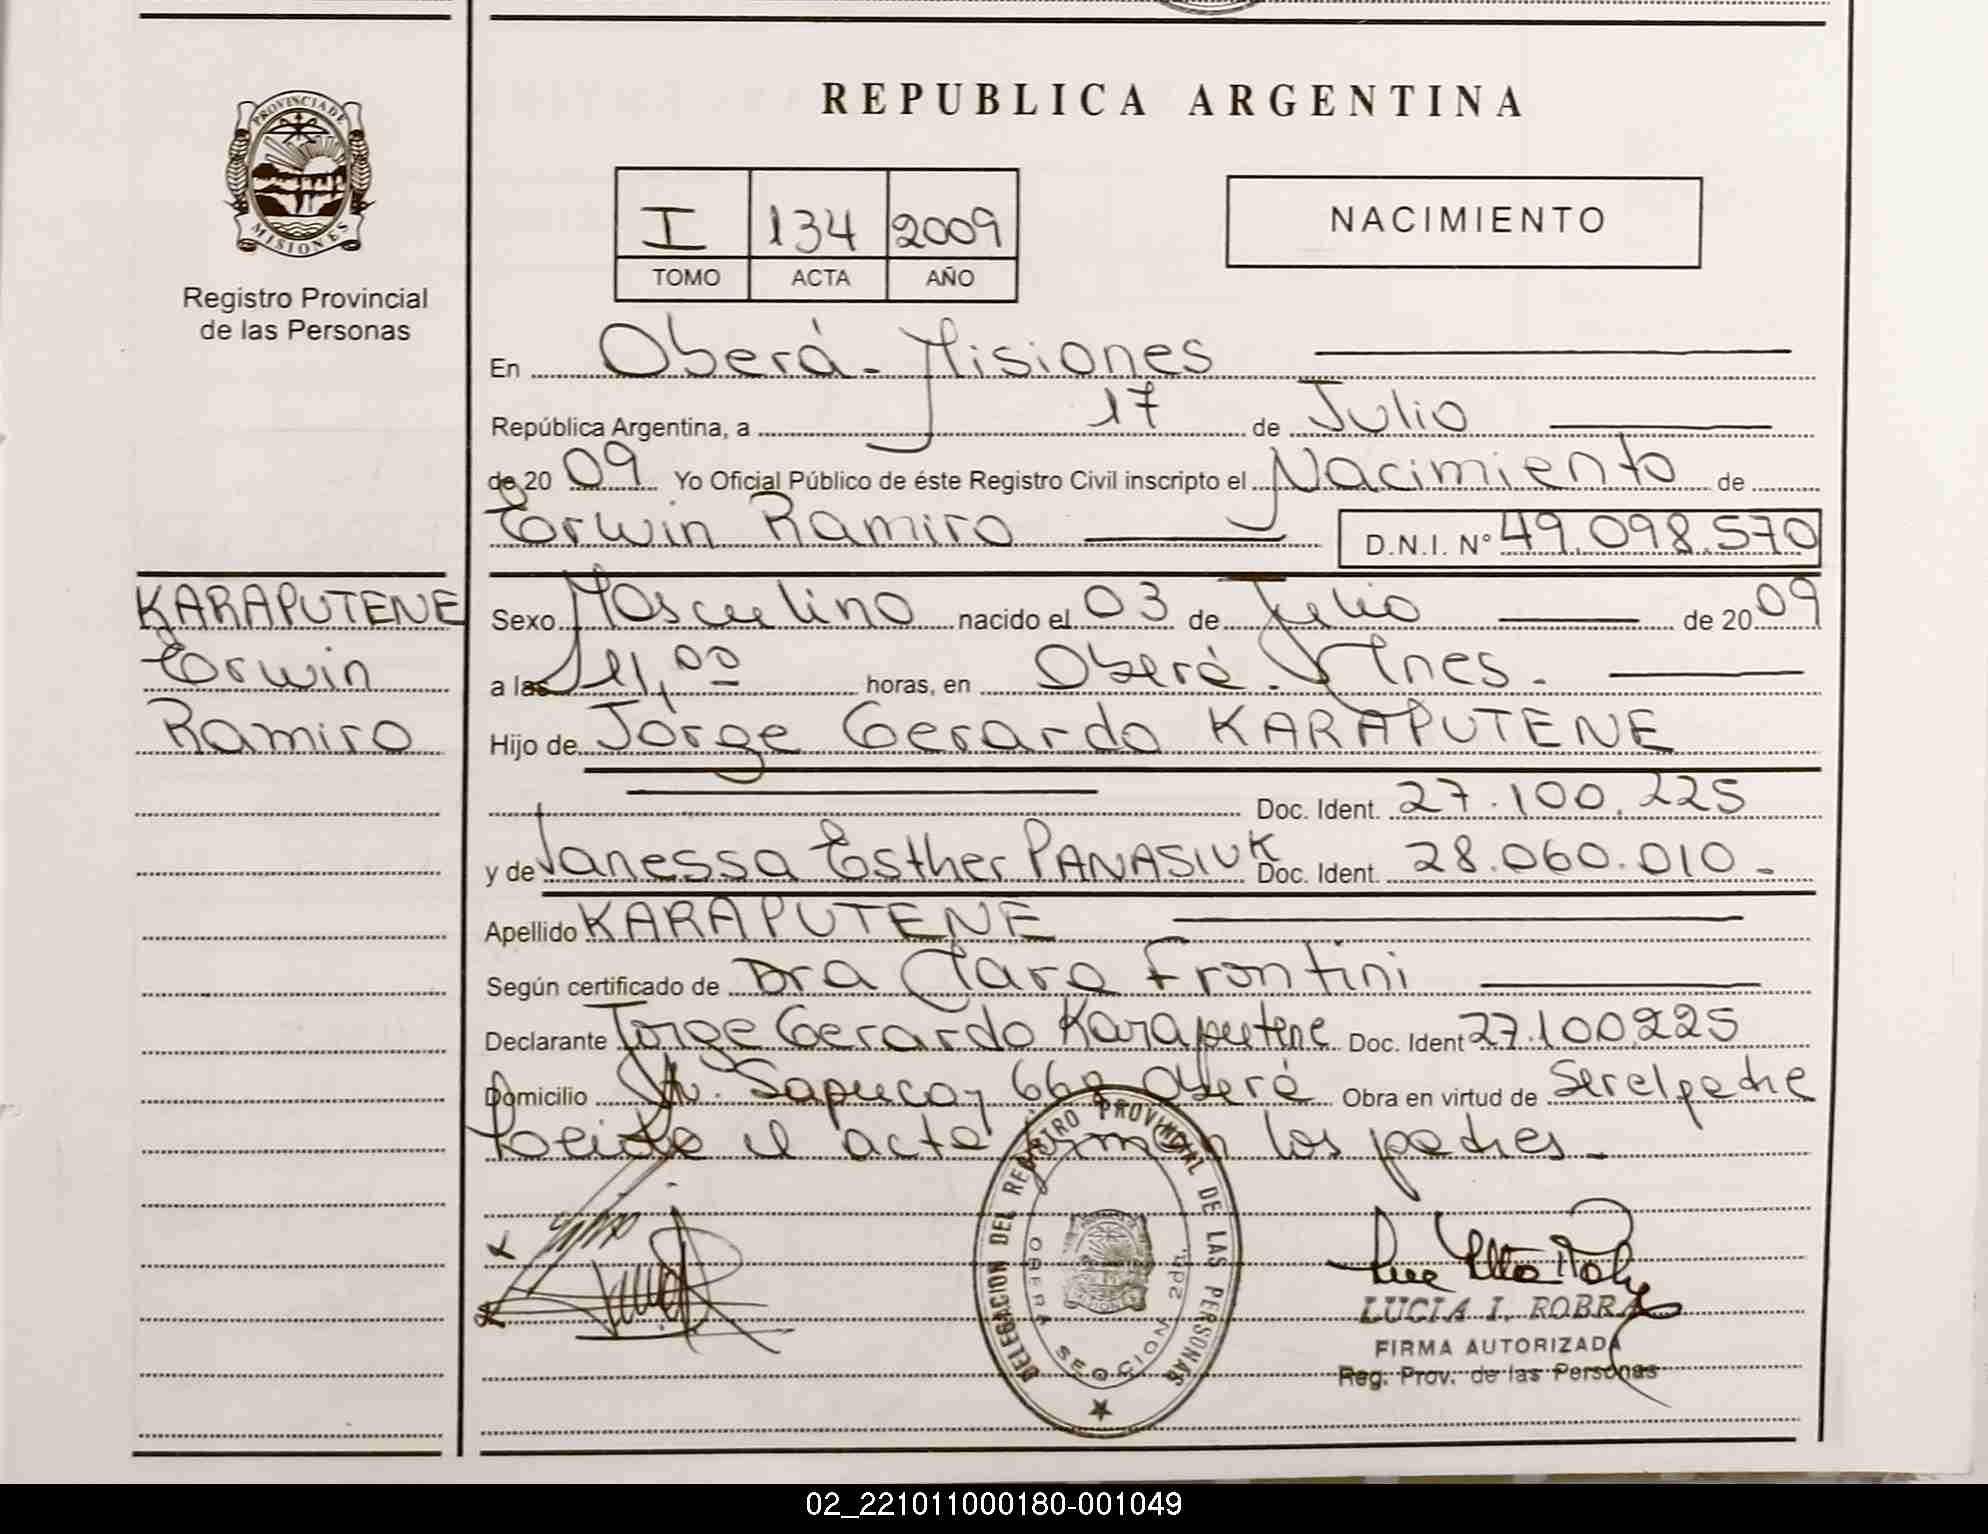 PROVINCIA DE
MISIONES
Registro Provincial
de las Personas
REPUBLICA ARGENTINA
I 134 2009
TOMO ACTA AÑO
NACIMIENTO
En Oberá - Misiones
República Argentina, a 17 de Julio
de 20 09 Yo Oficial Público de éste Registro Civil inscripto el Nacimiento de
Erwin Ramiro D.N.I. N° 49.098.570
KARAPUTENE
Erwin
Ramiro
Sexo Masculino nacido el 03 de Julio de 20 09
a las 11,00 horas, en Oberá - Mnes.
Hijo de Jorge Gerardo KARAPUTENE
Doc. Ident. 27.100.225
y de Vanessa Esther PANASIUK Doc. Ident. 28.060.010.-
Apellido KARAPUTENE
Según certificado de Dra Clara Frontini
Declarante Jorge Gerardo Karaputene Doc. Ident 27.100.225
Domicilio Av. Sapucay 669 Oberá Obra en virtud de Ser el padre
Leida el acta firman los padres.-
DELEGACION DEL REGISTRO PROVINCIAL DE LAS PERSONAS
OBERA SECCION 2da.
LUCIA I. ROBRA
FIRMA AUTORIZADA
Reg. Prov. de las Personas
02_221011000180-001049